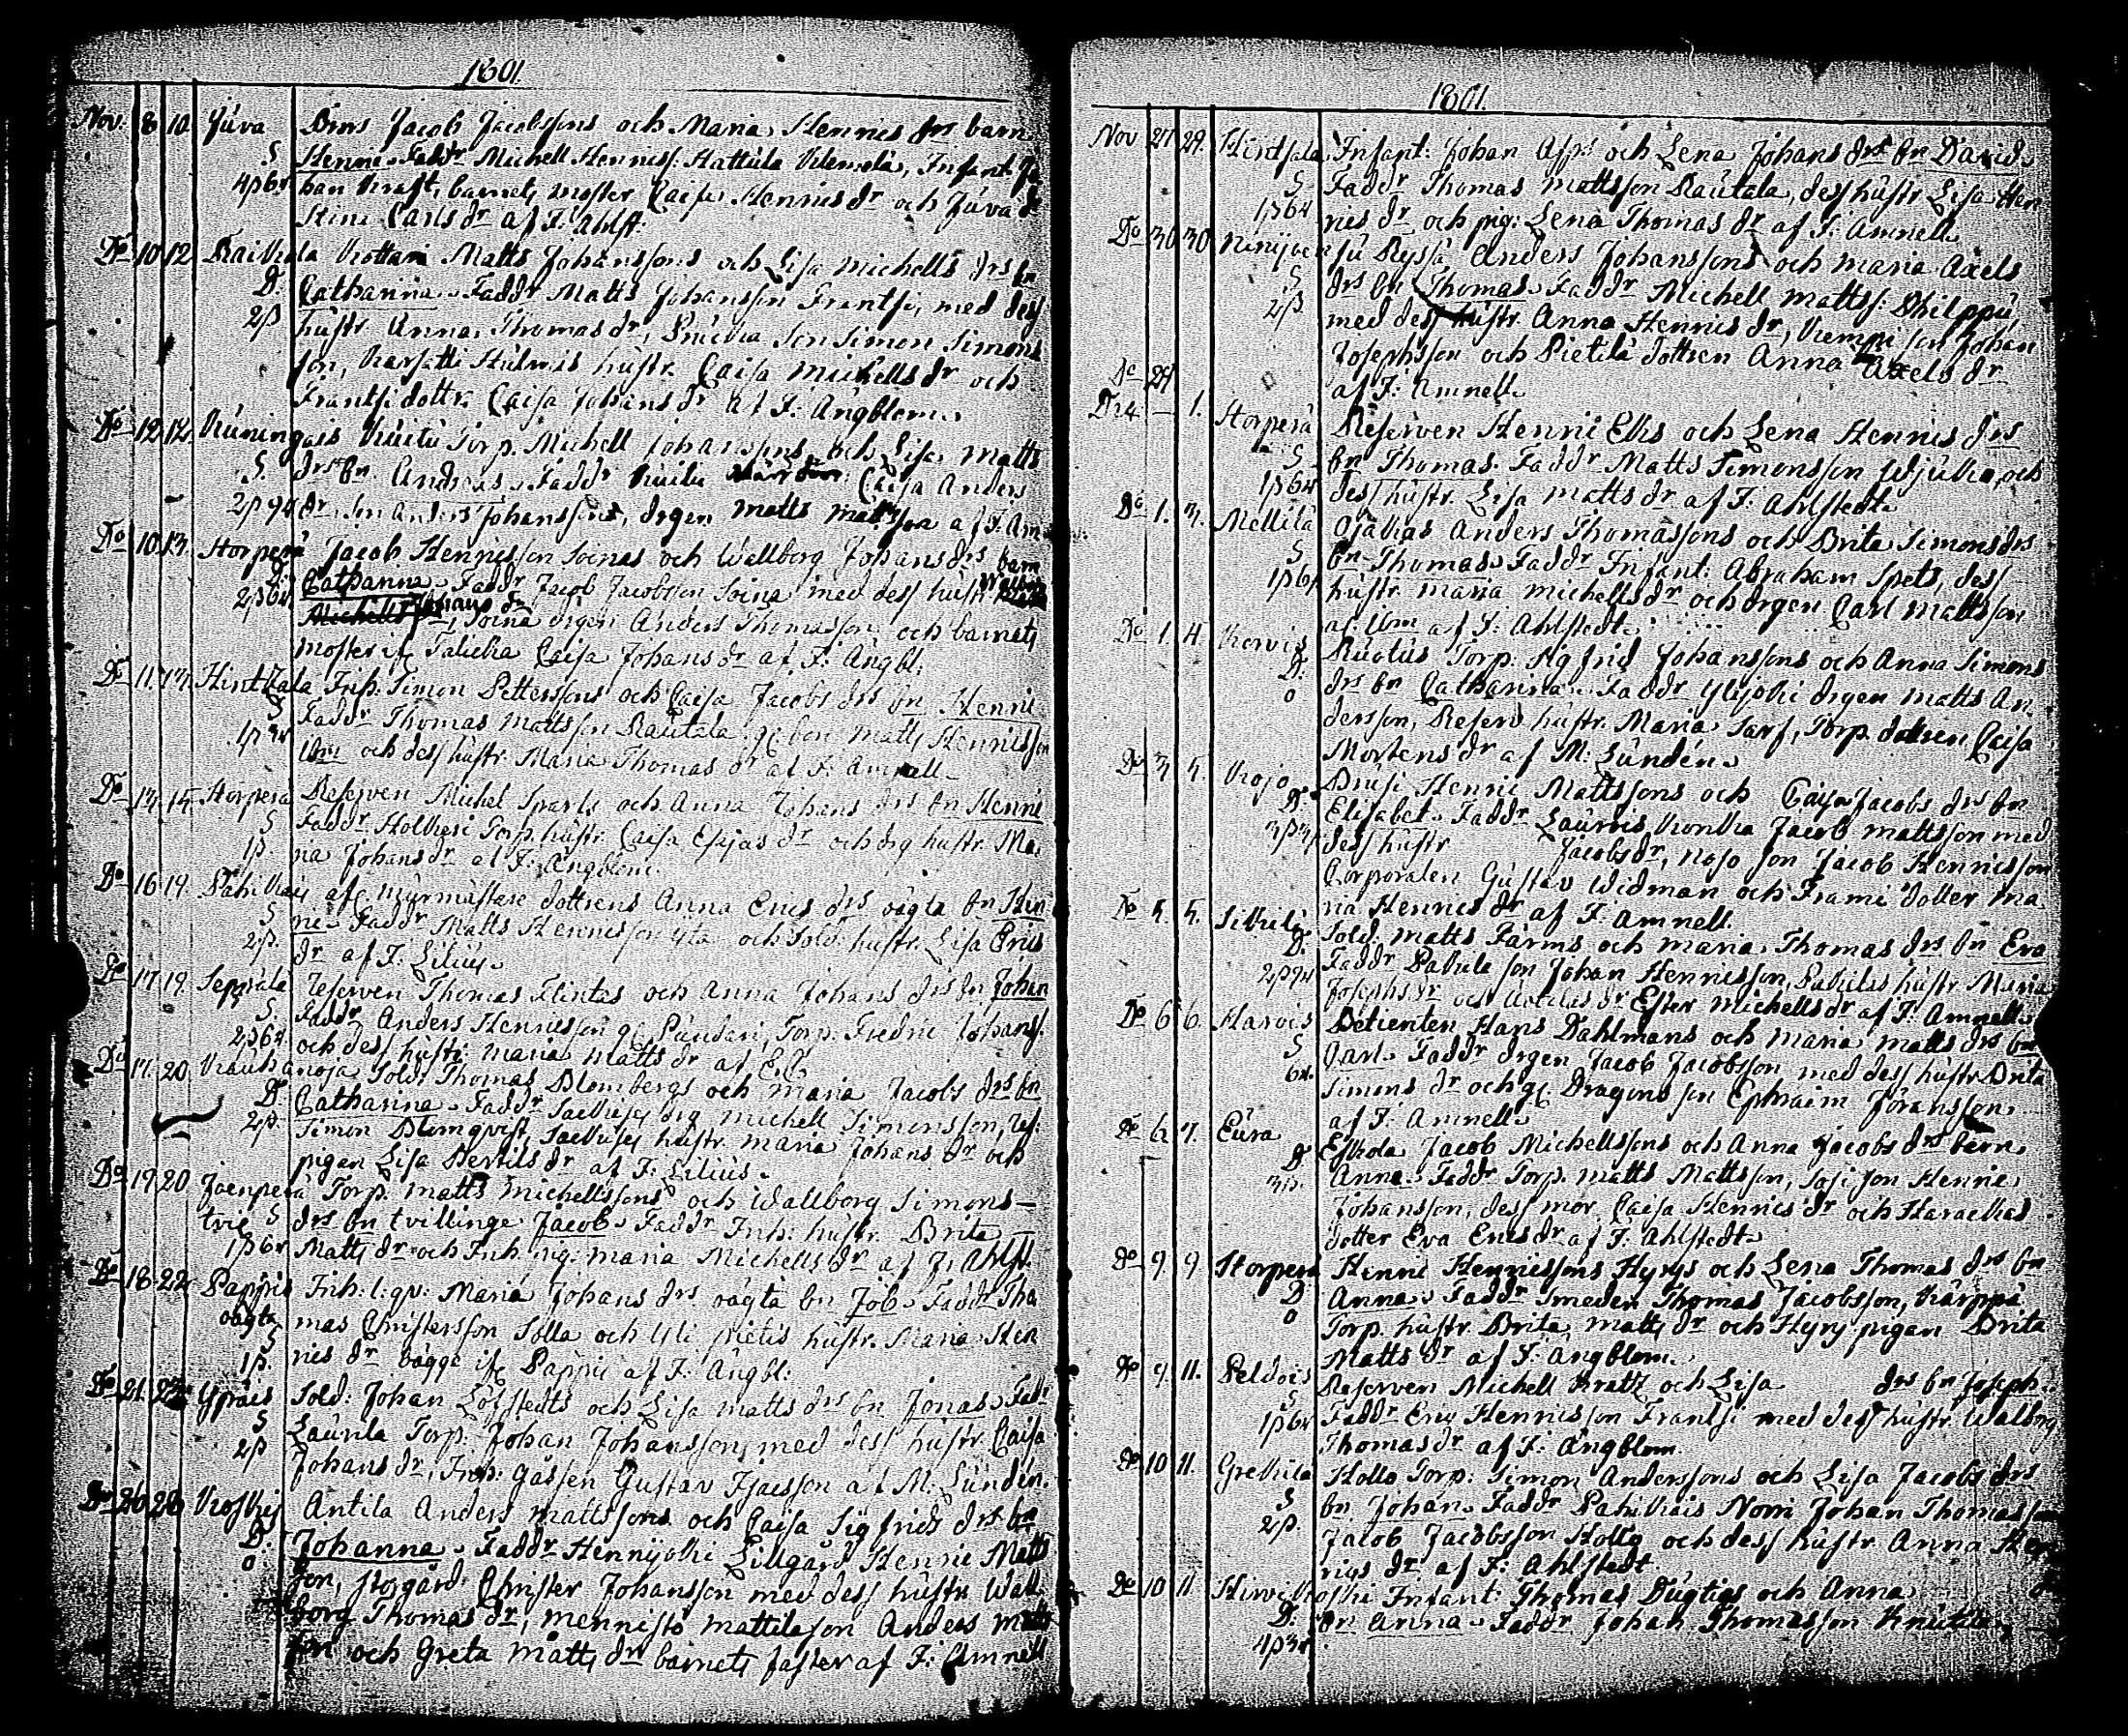 1801.
Nov. 8 10. Juva Bms Jacob Jacobssons och Maria Hennies drs barn
S Hennie. Faddr Michell Henniss: Hattula Infant Jo
4ß6r han Kraft, barnets moster Caisa Hennies dr och Juva dr
Stina Carls dr af F: Ahlst:
Do 10 12 Raikola Kottari Matts Johanssons och Lisa Michells drs bn
D. Catharina. Faddr Matts Johansson Frantsi, med dess
2ß hustr. Anna Thomas dr, son Simon Simons
son, hustr. Caisa Michells dr och
Frantsi dottr: Caisa Johans dr af F: Ängblom.
Do 12 14. Kuningais Kuitu Torp. Michell Johanssons och Lisa Matts
S. drs bn Andreas. Faddr Kuitu Caisa Anders
2ß9r dr. son Anders Johanssons, drgen Matts Mattsson af F. Am
Do 10 13. Storperä Jacob Hennisson Soinas och Wallborg Johans drs barn
D. Catharina. Faddr Jacob Jacobsson Soina med dess hustr
2ß6r Johans dr, Soina drgen Anders Thomasson, och barnets
moster if: Caisa Johans dr af F: Ängbl:
Do 11. 13. Hinttala Inh: Simon Pettersons och Caisa Jacobs drs bn Henni
S Faddr Thomas Mattsson Rautala. gl bon Matts Hennisson
1ß3r och dess hustr. Maria Thomas dr af F: Amnell
Do 14 15. Storperä Reserven Michel Sparfs och Anna Johans drs bn Henni
S Faddr Holkeri Torp. hustr. Caisa Esajas dr och drg hustr. Ma
1ß. ria Johans dr af F. Ängblom.
Do 16 19. Pahikais afl. murmästare dottrens Anna Erics drs oägta bn Hen
S ni. Faddr Matts Hennisson och Sold: hustr. Lisa Erics
2ß. dr af F: Lilius.
Do 17 19. Seppälä Reserven Thomas Flintas och Anna Johans drs bn Johan
S. Faddr Anders Hennisson gl Torp. Fredric Johans:
2ß6r och dess hustr: Maria Matts dr af E. L.
Do 17. 20 Kauhanoja Sold: Thomas Blombergs och Maria Jacobs drs bn
D. Catharina. Faddr drg Michell Simonsson, res:
2ß. Simon Blomqvist, hustr. Maria Johans dr och
pigan Lisa Bertils dr af F: Lilius.
Do 19 20 Jaenperä Torp. Matts Michellssons och Wallborg Simons
tvil S drs bn tvillinge Jacob. Faddr Inh: hustr. Brita
1ß6r Matts dr och Inh: pig: Maria Michells dr af F. Ahlst.
Do 18 22 Pappis Inh: l: qv: Maria Johans drs oägta bn Job. Faddr Tho
oägta mas Christersson Solla och Yli hustr. Maria Hen
S nies dr bägge if: Pappis af F: Ängbl:
1ß.
Do 21. 23 Ypräis Sold: Johan Löfstedts och Lisa Matts drs bn Jonas. Faddr
S Laurila Torp. Johan Johansson, med dess hustr. Caisa
2ß Johans dr, Inh: gässen Gustav Isacsson af M. Sunden.
Do 26 26 Koskis Antila Anders Mattssons och Caisa Sigfrids drs bn
D. Johanna. Faddr Hennijoki Lillgård Hennie Matts
0. son, storgård Christer Johansson med dess hustr. Wall
borg Thomas dr, mennistö Mattila son Anders Matts
son och Greta Matts dr barnets faster af F: Amnell
1801.
Nov 27 29. Hintsala Infant: Johan Asps och Lena Johans drs bn David.
S Faddr Thomas Mattsson Rautala, dess hustr. Lisa Hen
1ß6r nies dr och pig: Lena Thomas dr af F: Amnell
Do 30 30 Ninijoensu Ryssä Anders Johanssons och Maria Axels
S drs bn Thomas. Faddr Michell Matts: Philppu
2ß. med dess hustr. Anna Hennies dr, Kemppi son Johan
Josephsson och Pietilä dottren Anna Axels dr
Do 29 af F: Amnell.
Dec — 1. Storperä Reserven Henric Elks och Lena Hennies drs
S bn Thomas. Faddr Matts Simonsson och
1ß6r dess hustr. Lisa Matts dr af F: Ahlstedt
Do 1. 3. Mellilä Ojakas Anders Thomassons och Brita Simons drs
S bn Thomas. Faddr Infant: Abraham Spets, dess
1ß6r hustr. Maria Michells dr och drgen Carl Mattsson
af F: Ahlstedt.
Do 1. 4 Korvis Ruotus Torp: Sigfrid Johanssons och Anna Simons
D. drs bn Catharina. Faddr Ylijoki drgen Matts An
0 dersson, Reserv hustr. Maria Sarf, Torp. dottren Caisa
Mårtens dr af M: Sundén.
Do 3 5. Kojo Brusi Henric Mattssons och Caisa Jacobs drs bn
D. Elisabet. Faddr Lauris Jacob Mattsson med
3ß3r dess hustr Jacobs dr, Kojo son Jacob Hennisson
Corporalen Gustav Widman och Frami dotter Ma
ria Hennies dr af F. Amnell.
Do 5. 5. Sikilä Sold. Matts Färms och Maria Thomas drs bn Eva
D. Faddr Pakula son Johan Hennisson, Pakulas hustr. Maria
2ß9r Josephs dr och dr Ester Michells dr af F. Amnell
Do 6 6. Harvis Betienten Hans Dahlmans och Maria Matts drs bn
S Carl. Faddr drgen Jacob Jacobsson med dess hustr. Brita
6r. Simons dr och gl Dragons son Ephraim Göransson
af F: Amnell
Do 6 7. Eura Eskola Jacob Michellssons och Anna Jacobs drs barn
D Anna. Faddr Torp. Matts Mattsson, Sasi son Hennie
3ß. Johansson, dess mor Caisa Hennies dr och Harackas
dotter Eva Erics dr af F. Ahlstedt
Do 9. 9 Storperä Henric Hennissons Hyrys och Lena Thomas drs bn
D Anna. Faddr Smeden Thomas Jacobsson, Kärppä
0 Torp. hustr. Brita Matts dr och Hyry pigan Brita
Matts dr af F. Ängblom.
Do 9. 11. Peldois Reserven Michell Bratz och Lisa drs bn Joseph
S Faddr Eric Hennisson Frantsi med dess hustr. Walborg
1ß6r Thomas dr af F: Ängblom
Do 10 11. Grekkilä Hollo Torp: Simon Anderssons och Lisa Jacobs drs
S bn. Johan. Faddr Pahikais Nomi Johan Thomasson
2ß. Jacob Jacobsson Hollo och dess hustr. Anna Hen
rics dr af F: Ahlstedt
Do 10 11 Hirvikoski Infant: Thomas Dugtigs och Anna
D. bn Anna. Faddr Johan Thomasson Knuutila,
4ß3r.